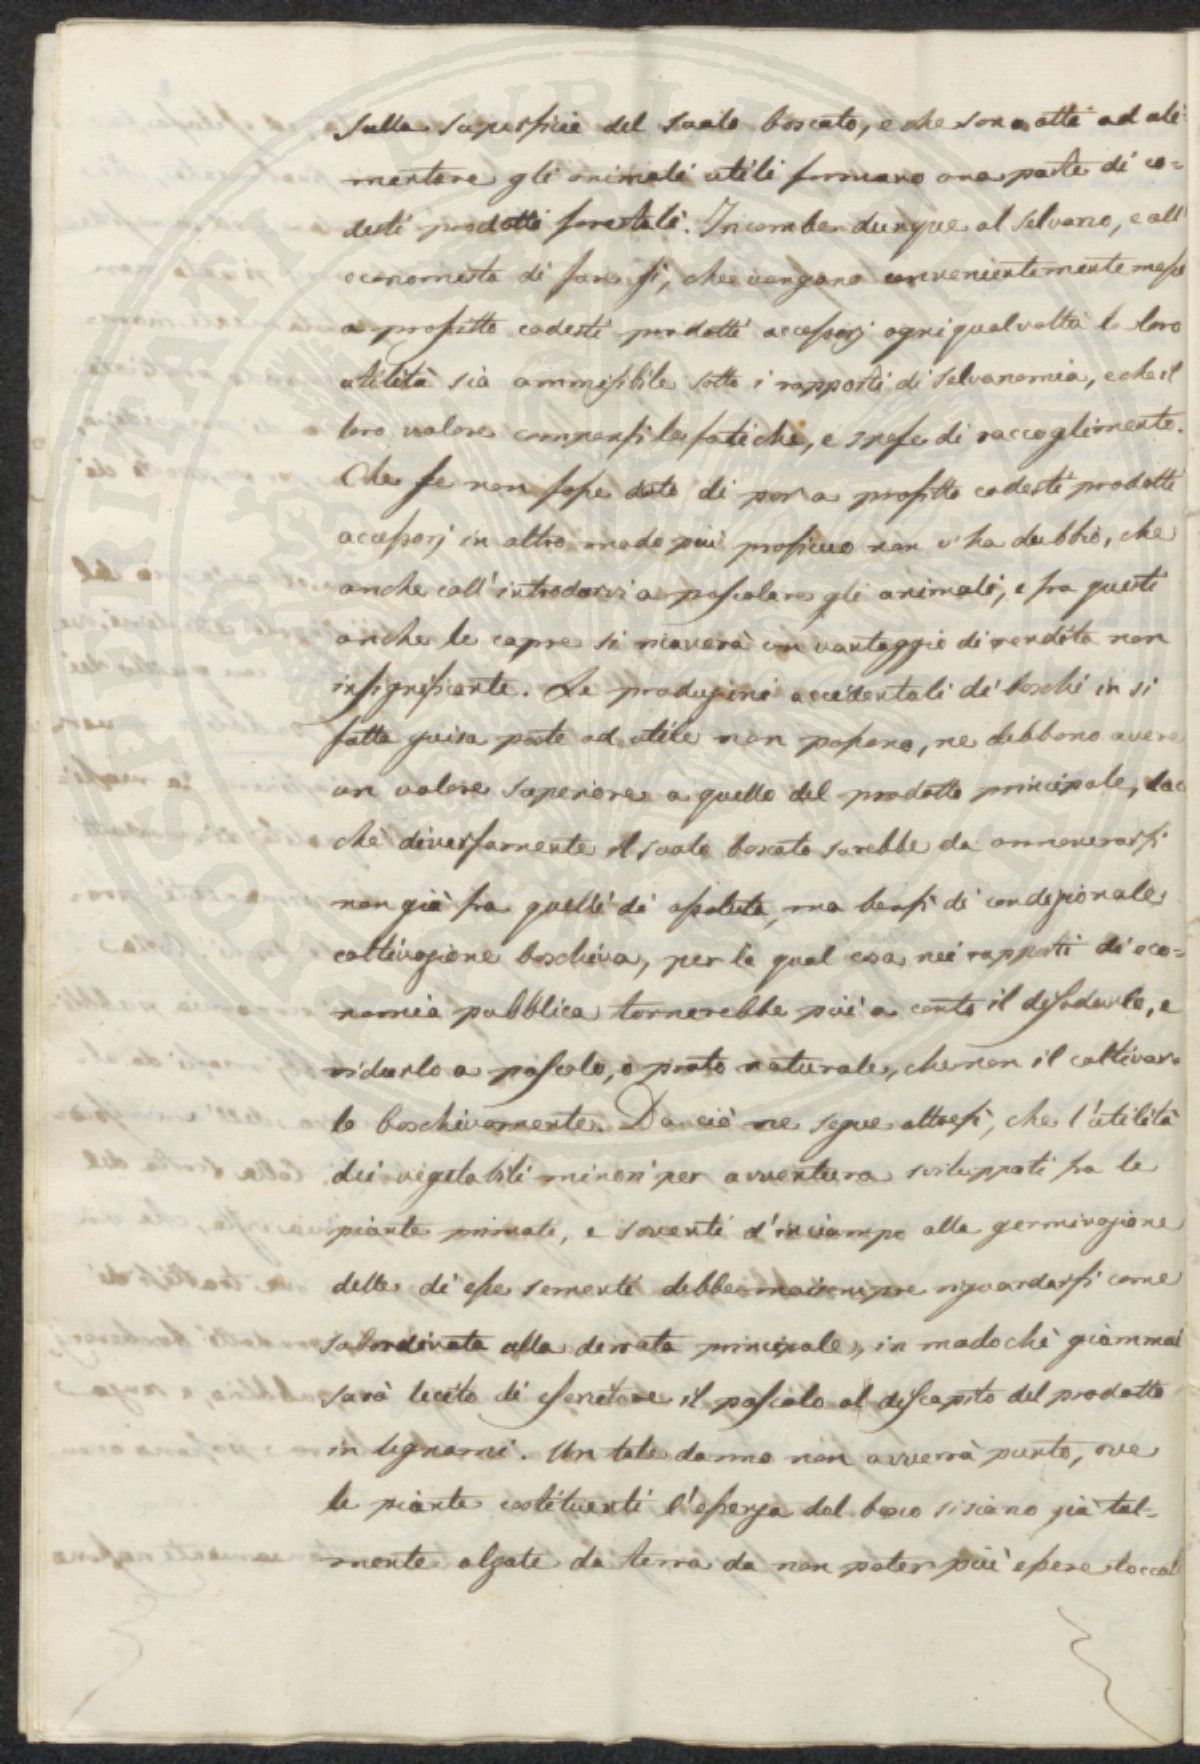 sulla superficie del suolo boscato, e che sono atti ad ali-
mentare gli animali utili formano una parte di co-
desti prodotti forestali. Incombe dunque al selvano, e all'
economista di fare sì, che vengano convenientemente messi
a profitto codesti prodotti accessorj ogni qual volta la loro
utilità sia ammissibile sotto i rapporti di selvanomia, e che il
loro valore compensi le fatiche, e spese di raccoglimento.
Che se non fosse dato di por a profitto codesti prodotti
accessorj in altro modo più proficuo non v'ha dubbio, che
anche coll'introdurvi a pascolare gli animali, e fra questi
anche le capre si ricaverà un vantaggio di rendita non
insignificante. Le produzioni accidentali di boschi in sì
fatta guisa poste ad utile non possono, ne debbono avere
un valore superiore a quello del prodotto principale, dac
chè diversamente il suolo boscato sarebbe da annoverarsi
non già fra quelli di assoluta, ma bensì di condizionale
coltivazione boschiva, per la qual cosa nei rapporti di eco-
nomia pubblica tornerebbe più a conto il dissodarlo, e
ridurlo a pascolo, o prato naturale, che non il coltivar-
lo boschivamente. Da ciò ne segue altresì, che l'utilità
dei vegetabili minori per avventura sviluppati fra le
piante primati, e soventi d'inciampo alla germinazione
delle di esse sementi debbe mai sempre riguardarsi come
subordinata alla derrata principale, in modo chè giammai
sarà lecito di esercitare il pascolo al discapito del prodotto
in legnami. Un tale danno non avverrà punto, ove
le piante costituenti l'essenza del bosco si siano già tal-
mente alzate da terra da non poter più essere toccat